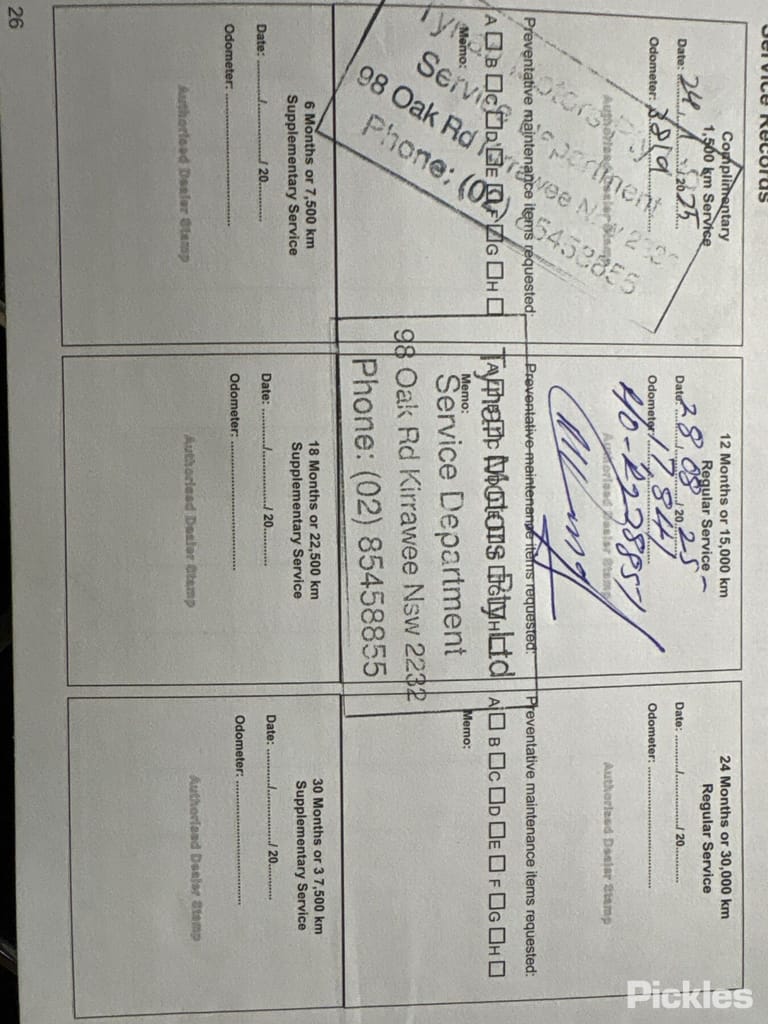 Service Records
Complimentary
1,500 km Service
Date: 24 / / 2025
Odometer: 3819
Authorised Dealer Stamp
Preventative maintenance items requested:
A B C D E F G H
Memo:
Tynan Motors Pty
Service Department
98 Oak Rd Kirrawee Nsw 2232
Phone: (02) 85458855
12 Months or 15,000 km
Regular Service
Date: 28 08 20 25
Odometer: 17841
Authorised Dealer Stamp
Preventative maintenance items requested:
A B C D E F G H
Memo:
Tynan Motors Pty Ltd
Service Department
98 Oak Rd Kirrawee Nsw 2232
Phone: (02) 85458855
24 Months or 30,000 km
Regular Service
Date: ........./........./ 20.........
Odometer: ..............................
Authorised Dealer Stamp
Preventative maintenance items requested:
A B C D E F G H
Memo:
6 Months or 7,500 km
Supplementary Service
Date: ........./........./ 20.........
Odometer: ..............................
Authorised Dealer Stamp
18 Months or 22,500 km
Supplementary Service
Date: ........./........./ 20.........
Odometer: ..............................
Authorised Dealer Stamp
30 Months or 3 7,500 km
Supplementary Service
Date: ........./........./ 20.........
Odometer: ..............................
Authorised Dealer Stamp
26
Pickles